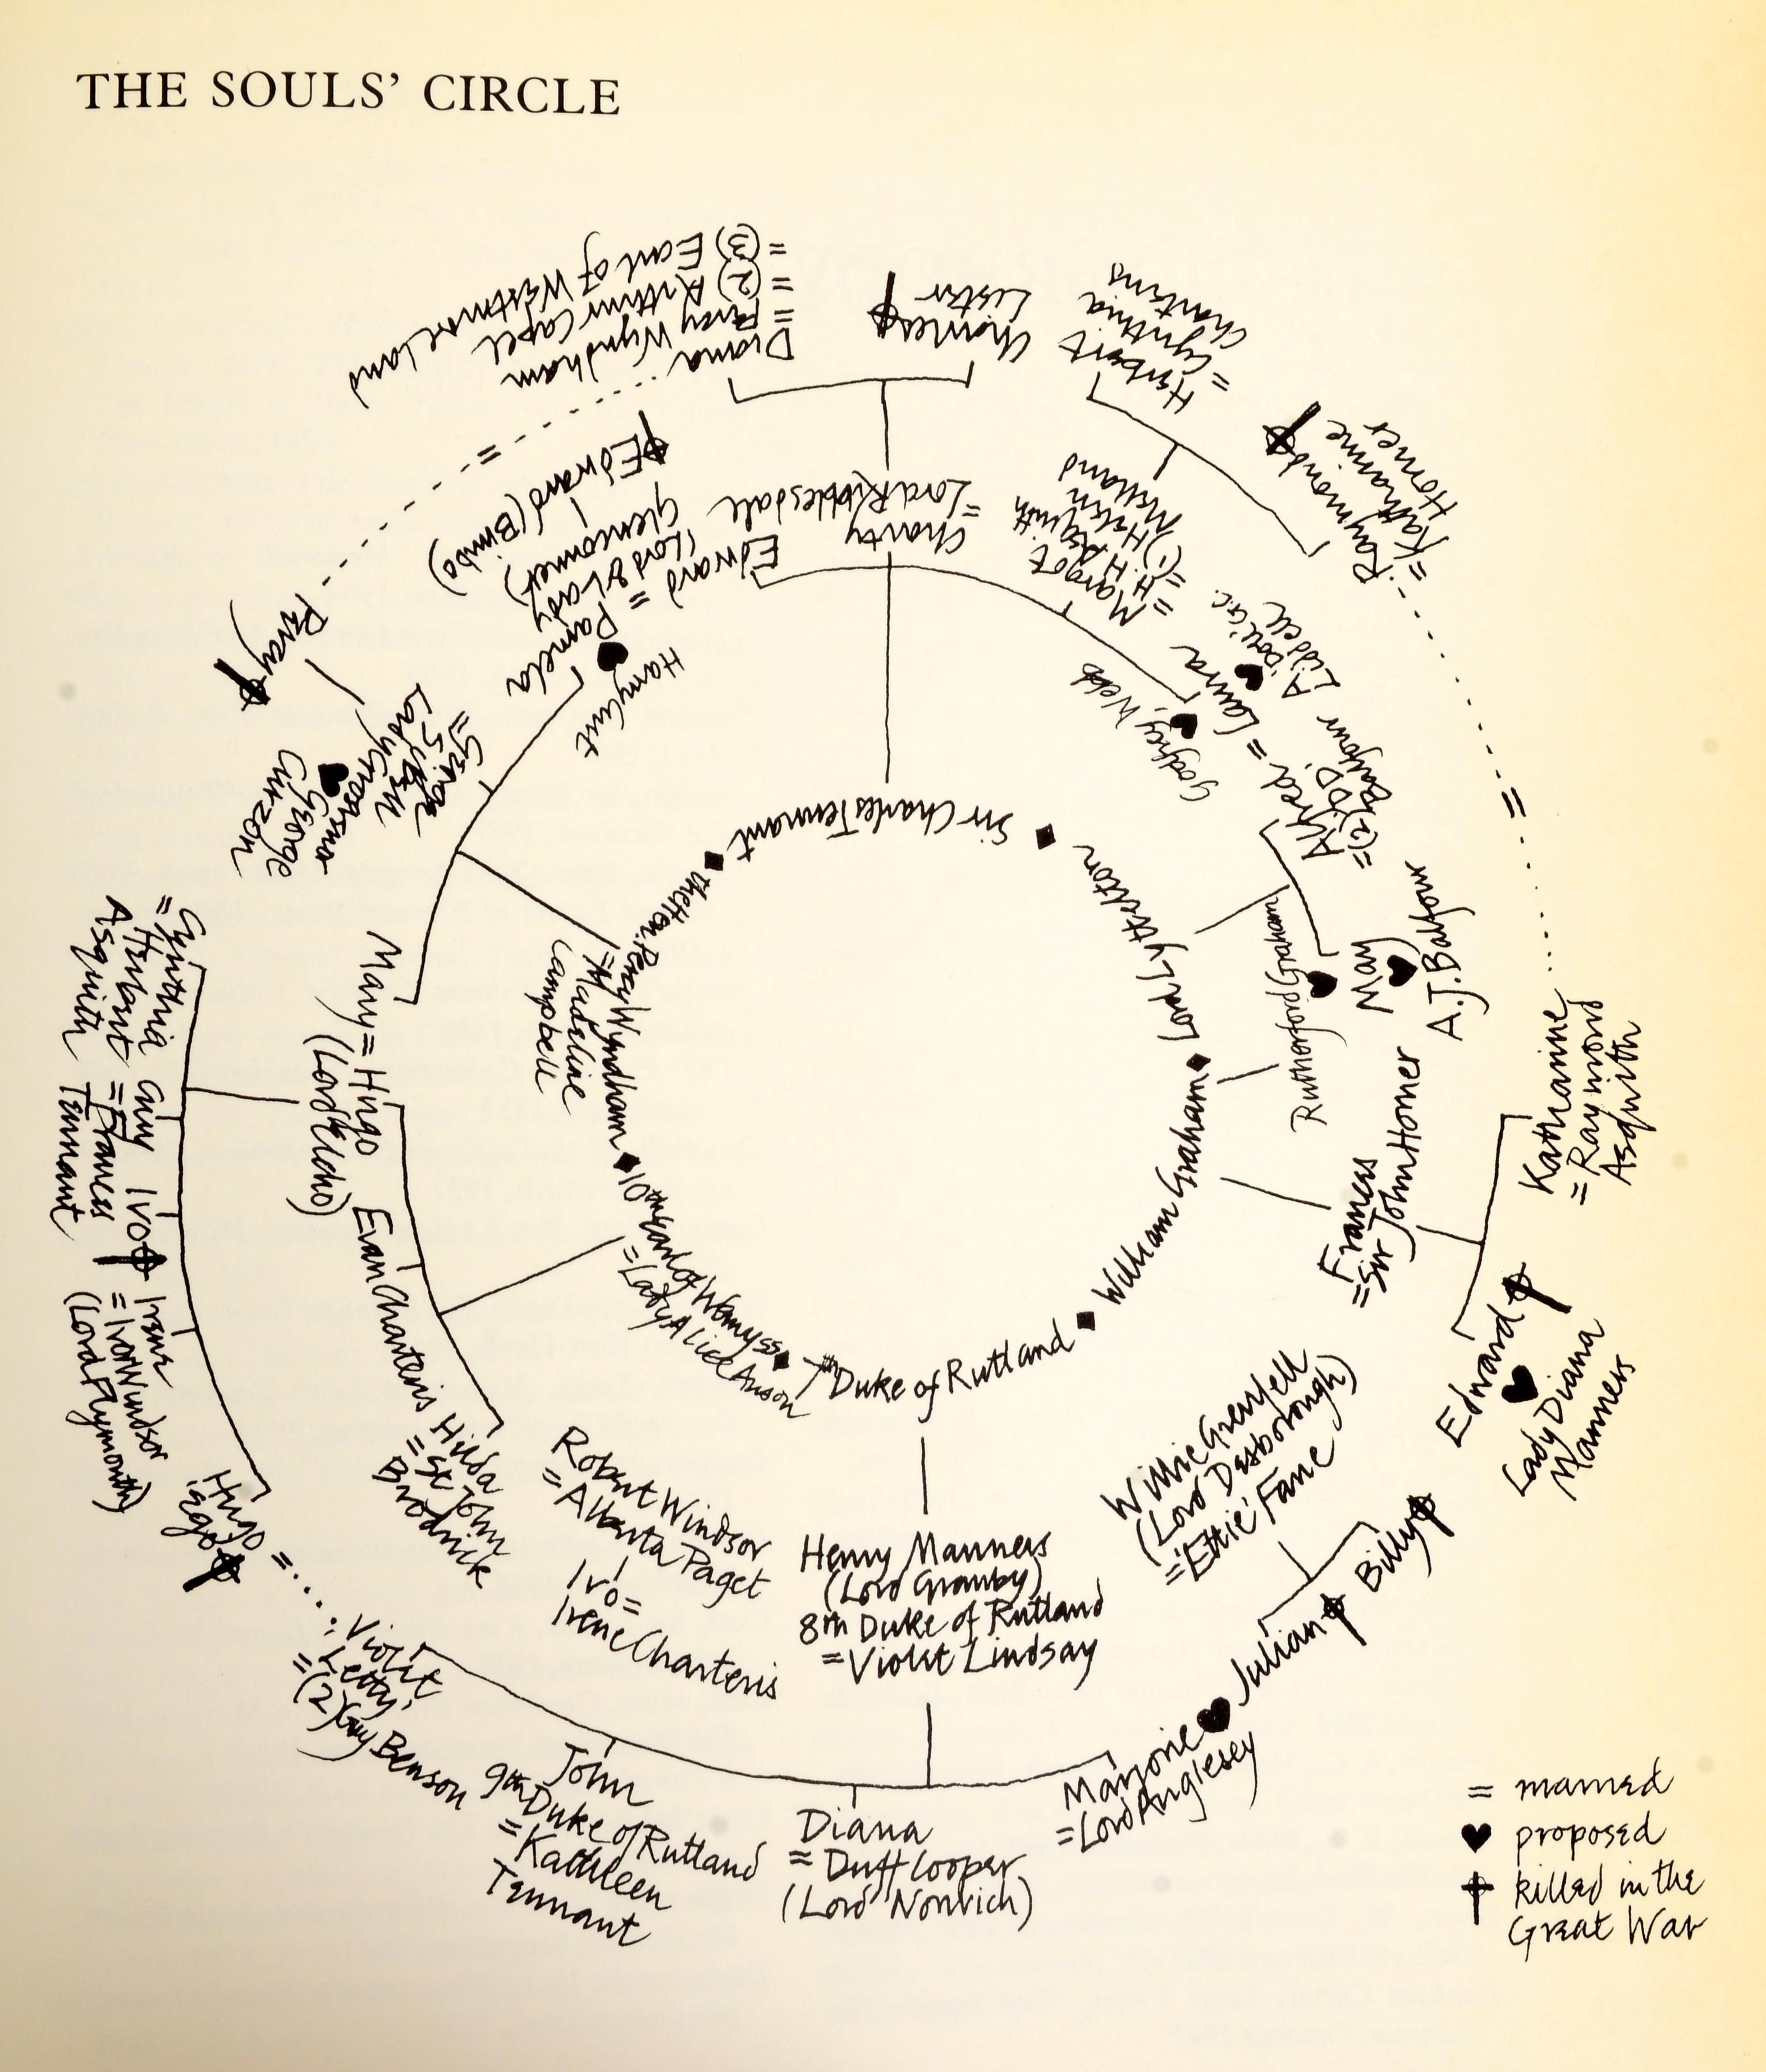 THE SOULS' CIRCLE
Sir Charles Tennant
Lord Lyttelton
William Graham
7th Duke of Rutland
10th Earl of Wemyss
= Lady Alice Anson
the Hon. Percy Wyndham
= Madeline
Campbell
Edward
= Pamela
(Lord & Lady
Glenconner)
Edward (Bimbo)
Harry Cust
Charty
= Lord Ribblesdale
Diana
= Percy Wyndham
= (2) Arthur Capel
= (3) Earl of Westmoreland
Charles
Lister
Margot
= H.H. Asquith
= (1) Helen
Melland
Herbert
= Cynthia
Charteris
Raymond
= Katharine
Horner
Laura
Godfrey Webb
A.G.C.
Liddell
Alfred = Laura
= (2) D.D.
Balfour
May
A.J. Balfour
Rutherford Graham
Frances
= Sir John Horner
Katharine
= Raymond
Asquith
Edward
Lady Diana
Manners
Willie Grenfell
(Lord Desborough)
= 'Ettie' Fane
Julian
Billy
Henry Manners
(Lord Granby)
8th Duke of Rutland
= Violet Lindsay
Marjorie
= Lord Anglesey
Diana
= Duff Cooper
(Lord Norwich)
John
9th Duke of Rutland
= Kathleen
Tennant
Violet
'Letty'
= (2) Guy Benson
Robert Windsor
= Alberta Paget
Ivo =
Irene Charteris
Mary = Hugo
(Lord Elcho)
Evan Charteris
Hilda
= St John
Brodrick
Cynthia
= Herbert
Asquith
Guy
= Frances
Tennant
Ivo
Irene
= Ivor Windsor
(Lord Plymouth)
Hugo
'Ego'
=
= George
= Lady
Grosvenor
George
Curzon
Percy
= married
♥ proposed
† killed in the
Great War